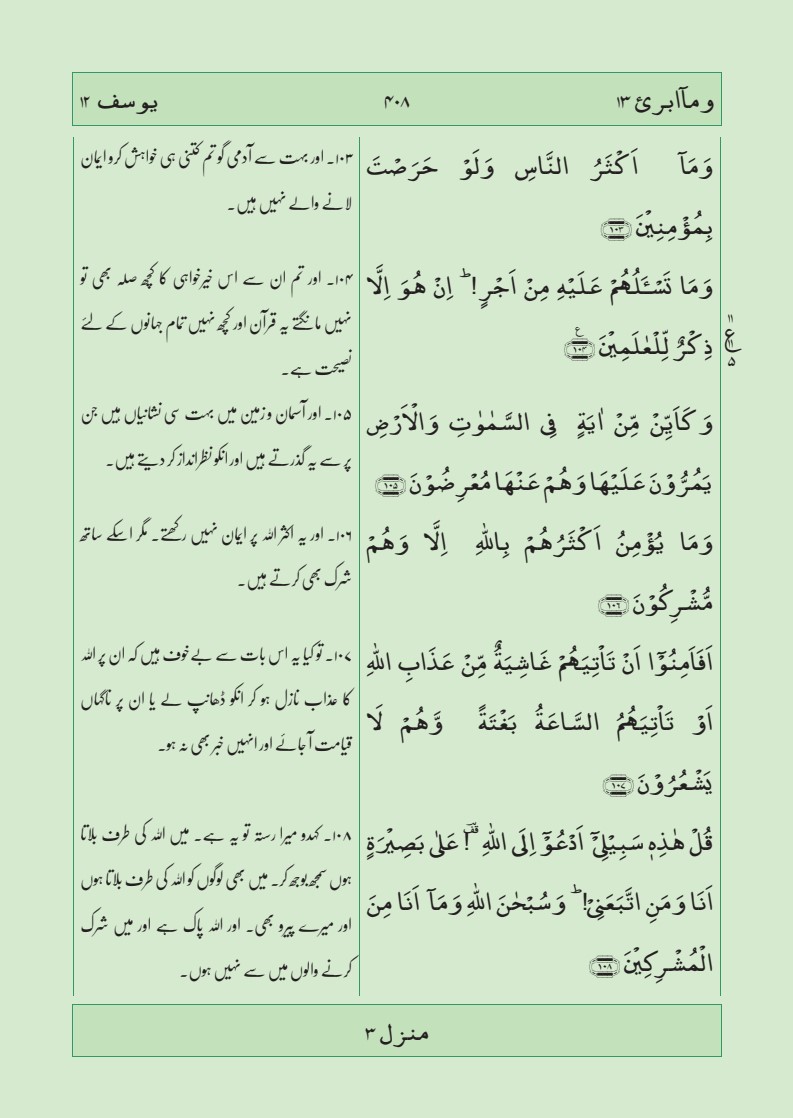 وَمَآاُبَرِّئُ ۱۳
۴۰۸
یوسف ۱۲
وَمَاۤ اَكۡثَرُ النَّاسِ وَلَوۡ حَرَصۡتَ
بِمُؤۡمِنِيۡنَ ﴿۱۰۳﴾
وَمَا تَسۡـَٔلُهُمۡ عَلَيۡهِ مِنۡ اَجۡرٍ‌ؕ اِنۡ هُوَ اِلَّا
ذِكۡرٌ لِّلۡعٰلَمِيۡنَ ﴿۱۰۴﴾
وَكَاَيِّنۡ مِّنۡ اٰيَةٍ فِى السَّمٰوٰتِ وَالۡاَرۡضِ
يَمُرُّوۡنَ عَلَيۡهَا وَهُمۡ عَنۡهَا مُعۡرِضُوۡنَ ﴿۱۰۵﴾
وَمَا يُؤۡمِنُ اَكۡثَرُهُمۡ بِاللّٰهِ اِلَّا وَهُمۡ
مُّشۡرِكُوۡنَ ﴿۱۰۶﴾
اَفَاَمِنُوۡۤا اَنۡ تَاۡتِيَهُمۡ غَاشِيَةٌ مِّنۡ عَذَابِ اللّٰهِ
اَوۡ تَاۡتِيَهُمُ السَّاعَةُ بَغۡتَةً وَّهُمۡ لَا
يَشۡعُرُوۡنَ ﴿۱۰۷﴾
قُلۡ هٰذِهٖ سَبِيۡلِىۡۤ اَدۡعُوۡۤ اِلَى اللّٰهِ ‌ؔ عَلٰى بَصِيۡرَةٍ
اَنَا وَمَنِ اتَّبَعَنِىۡ‌ؕ وَسُبۡحٰنَ اللّٰهِ وَمَاۤ اَنَا مِنَ
الۡمُشۡرِكِيۡنَ ﴿۱۰۸﴾
۱۰۳۔ اور بہت سے آدمی گو تم کتنی ہی خواہش کرو ایمان
لانے والے نہیں ہیں۔
۱۰۴۔ اور تم ان سے اس خیرخواہی کا کچھ صلہ بھی تو
نہیں مانگتے یہ قرآن اور کچھ نہیں تمام جہانوں کے لئے
نصیحت ہے۔
۱۰۵۔ اور آسمان و زمین میں بہت سی نشانیاں ہیں جن
پر سے یہ گذرتے ہیں اور انکو نظر انداز کر دیتے ہیں۔
۱۰۶۔ اور یہ اکثر اللہ پر ایمان نہیں رکھتے۔ مگر اسکے ساتھ
شرک بھی کرتے ہیں۔
۱۰۷۔ تو کیا یہ اس بات سے بےخوف ہیں کہ ان پر اللہ
کا عذاب نازل ہو کر انکو ڈھانپ لے یا ان پر ناگہاں
قیامت آجائے اور انہیں خبر بھی نہ ہو۔
۱۰۸۔ کہدو میرا رستہ تو یہ ہے۔ میں اللہ کی طرف بلاتا
ہوں سمجھ بوجھ کر۔ میں بھی لوگوں کو اللہ کی طرف بلاتا ہوں
اور میرے پیرو بھی۔ اور اللہ پاک ہے اور میں شرک
کرنے والوں میں سے نہیں ہوں۔
منزل ۳